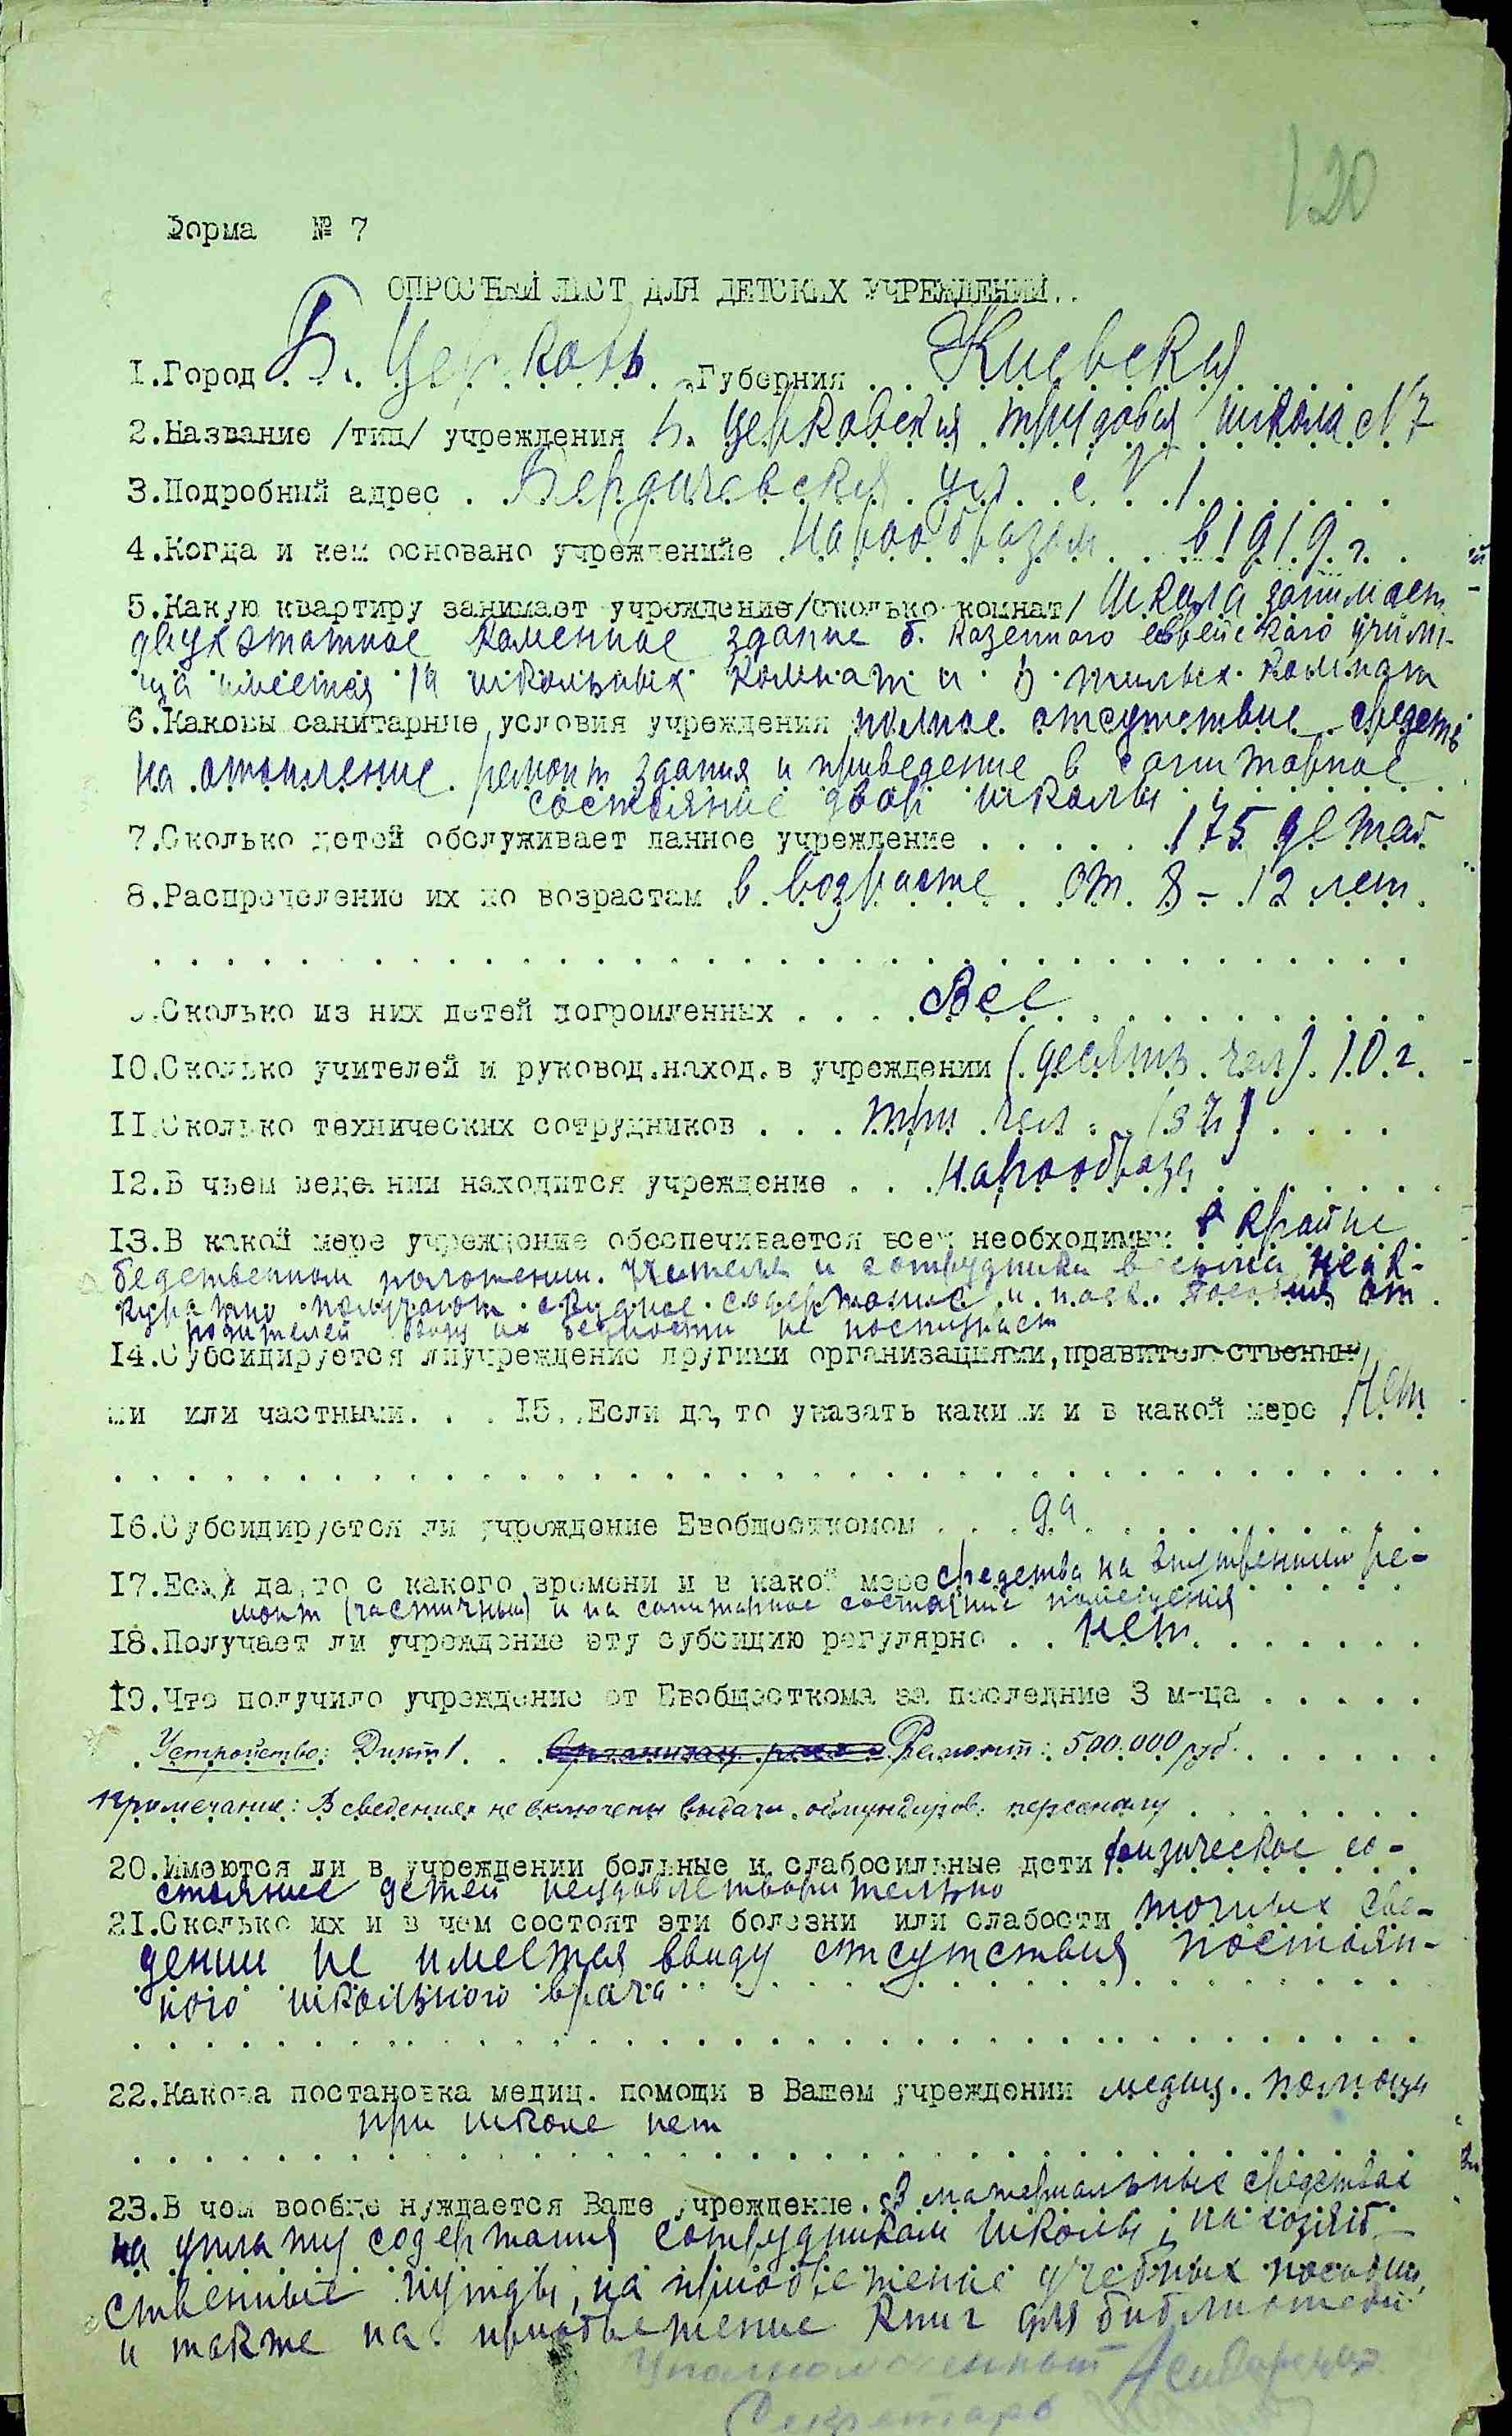 120
Форма № 7
ОПРОСНЫЙ ЛИСТ ДЛЯ ДЕТСКИХ УЧРЕЖДЕНИЙ..
1.Город Б. Церковь Губерния Киевская
2.Название /тип/ учреждения Б. Церковская трудовая школа № 7
3.Подробный адрес . Бердичевская ул. № 1
4.Когда и кем основано учреждениие Наробразом в 1919 г.
5.Какую квартиру занимает учреждение/сколько комнат/ Школа занимает
двухэтажное каменное здание б. казенного еврейского учили-
ща имеется школьных комнат и жилых комнат
6.Каковы санитарные условия учреждения полное отсутствие средств
на отопление ремонт здания и приведение в санитарное
состояние двор школы
7.Сколько детей обслуживает данное учреждение . . . . . 175 детей
8.Распределение их по возрастам в возрасте от 8 - 12 лет.
9.Сколько из них детей погромленных . . . . Все
10.Сколько учителей и руковод.наход.в учреждении (десять чел). 10 ч.
11.Сколько технических сотрудников . . . три чел. (3 ч)
12.В чьем ведении находится учреждение . . . Наробраза
13.В какой мере учреждение обеспечивается всем необходимым в крайне
бедственном положении. Учителя и сотрудники весьма неак-
куратно получают скудное содержание и пособия от
родителей ввиду их бедности не поступает
14.Субсидируется лиучреждение другими организациями,правительственны
ми или частными. . . 15..Если да,то указать какими и в какой мере Нет
16.Субсидируется ли учреждение Евобщесткомом . . . да
17.Если да,то с какого времени и в какой мере средства на внутренний ре-
монт (частичный) и на санитарное состояние помещения
18.Получает ли учреждение эту субсидию регулярно . . нет
19.Что получило учреждение от Евобщесткома за последние 3 м-ца . . . . .
Устройство: Дикт 1. Ремонт: 500.000 руб.
Примечание: В сведениях не включены выдачи обмундиров. персоналу
20.Имеются ли в учреждении больные и слабосильные дети физическое со-
стояние детей неудовлетворительно
21.Сколько их и в чем состоят эти болезни или слабости точных све-
дении не имеется ввиду отсутствия постоян-
ного школьного врача
22.Какова постановка медиц. помощи в Вашем учреждении медиц. помощи
при школе нет
23.В чем вообще нуждается Ваше учреждение. В материальных средствах
на уплату содержания сотрудникам школы, на хозяй-
ственные нужды, на приобретение учебных пособий,
и также на приобретение книг для библиотеки.
Уполномоченный
Секретарь